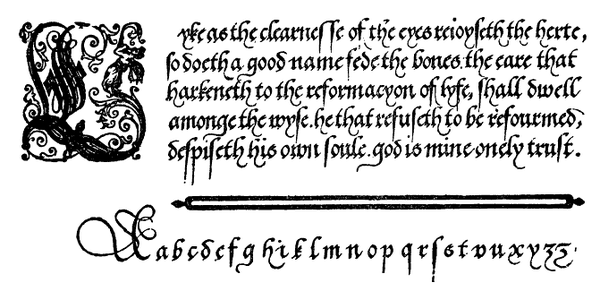 Lyke as the clearnesse of the eyes reioyseth the herte,
so doeth a good name fede the bones. the eare that
harkeneth to the reformacyon of lyfe, shall dwell
amonge the wyse. he that refuseth to be refourmed,
despiseth his own soule. god is mine onely trust.
A a b c d e f g h i k l m n o p q r ſ s t v u x y z z